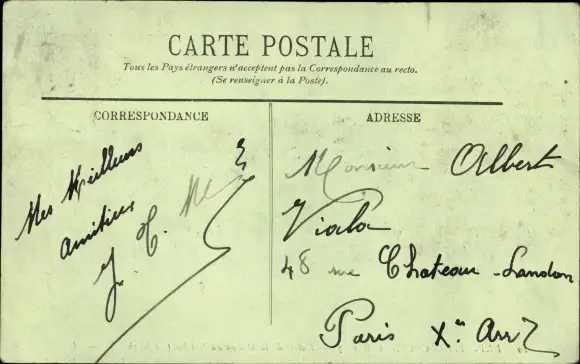 CARTE POSTALE
Tous les Pays étrangers n'acceptent pas la Correspondance au recto.
(Se renseigner à la Poste).
CORRESPONDANCE
ADRESSE
Mes Meilleurs
amitiés
Monsieur Albert
Viala
48 rue Chateau-Landon
Paris Xe Arr